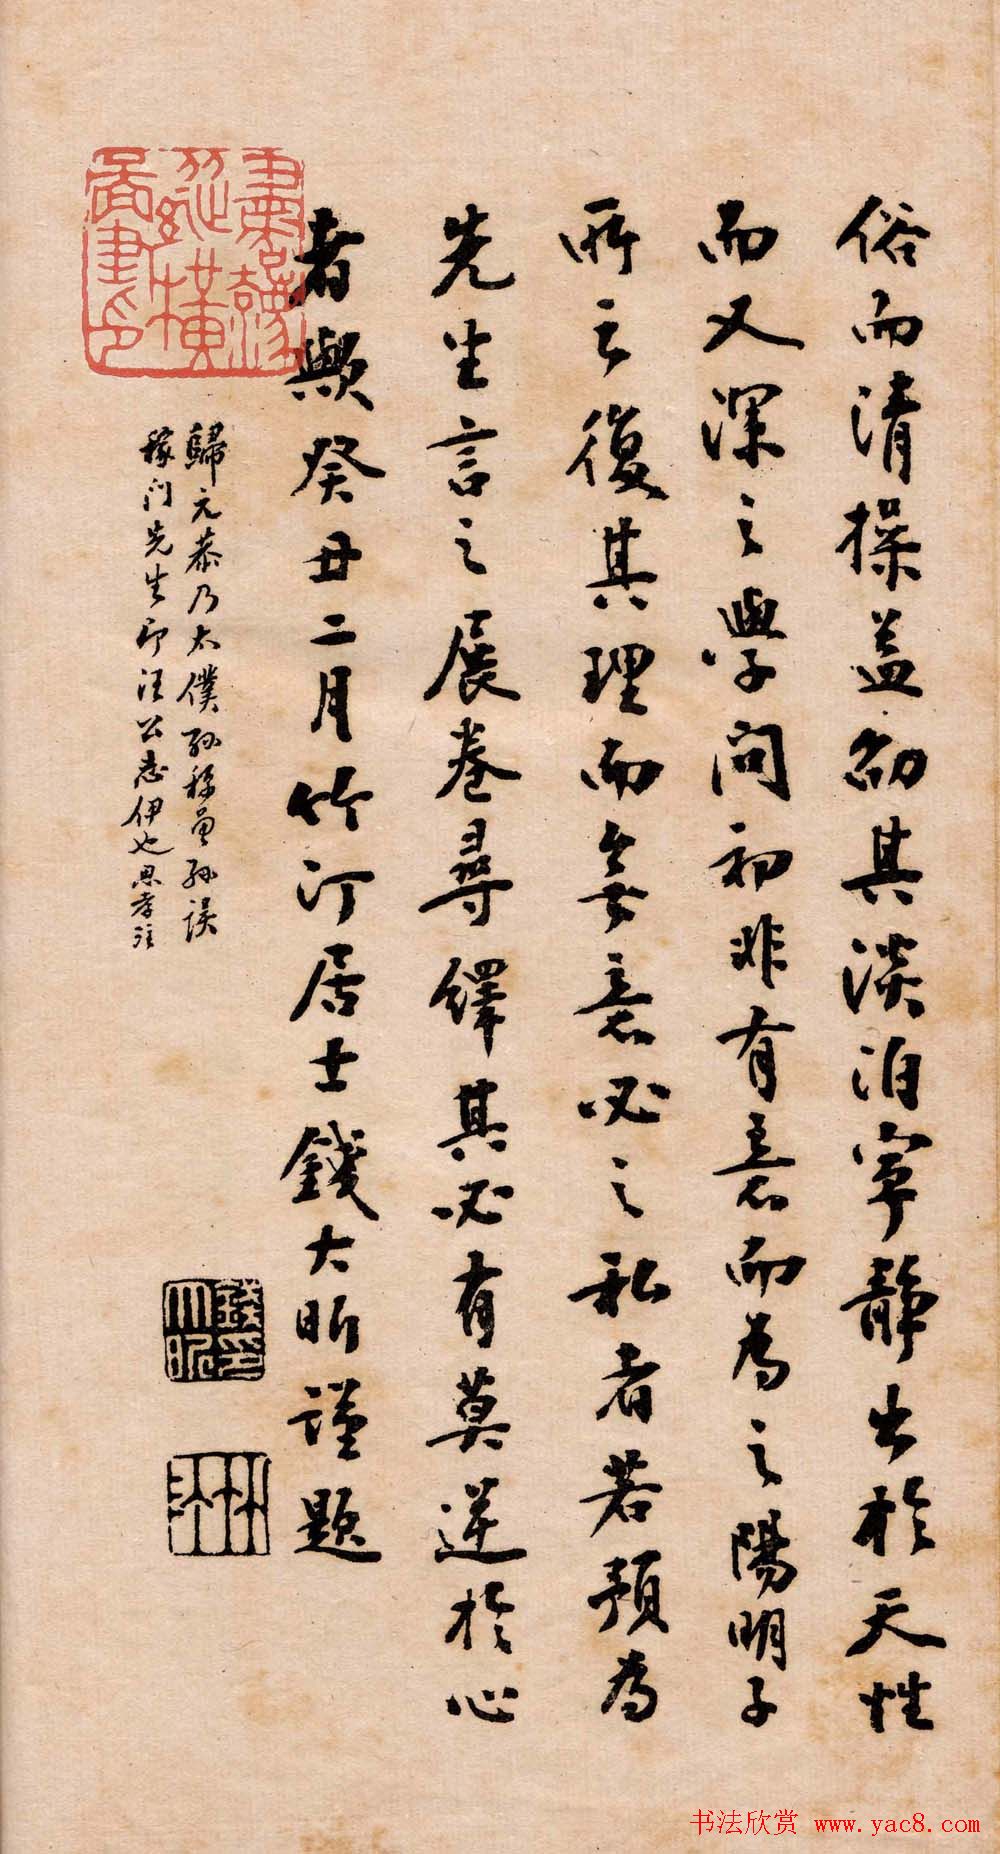 俗而清操益劭其淡泊寧靜出於天性
而又深之學問初非有意而為之陽明子
所云復其理而無意必之私者若預為
先生言之展卷尋繹其必有莫逆於心
者歟癸丑二月竹汀居士錢大昕謹題
歸元恭乃太僕孫稱曾孫誤
稼門先生即汪公志伊也思孝注
錢大昕印
书法欣赏 www.yac8.com